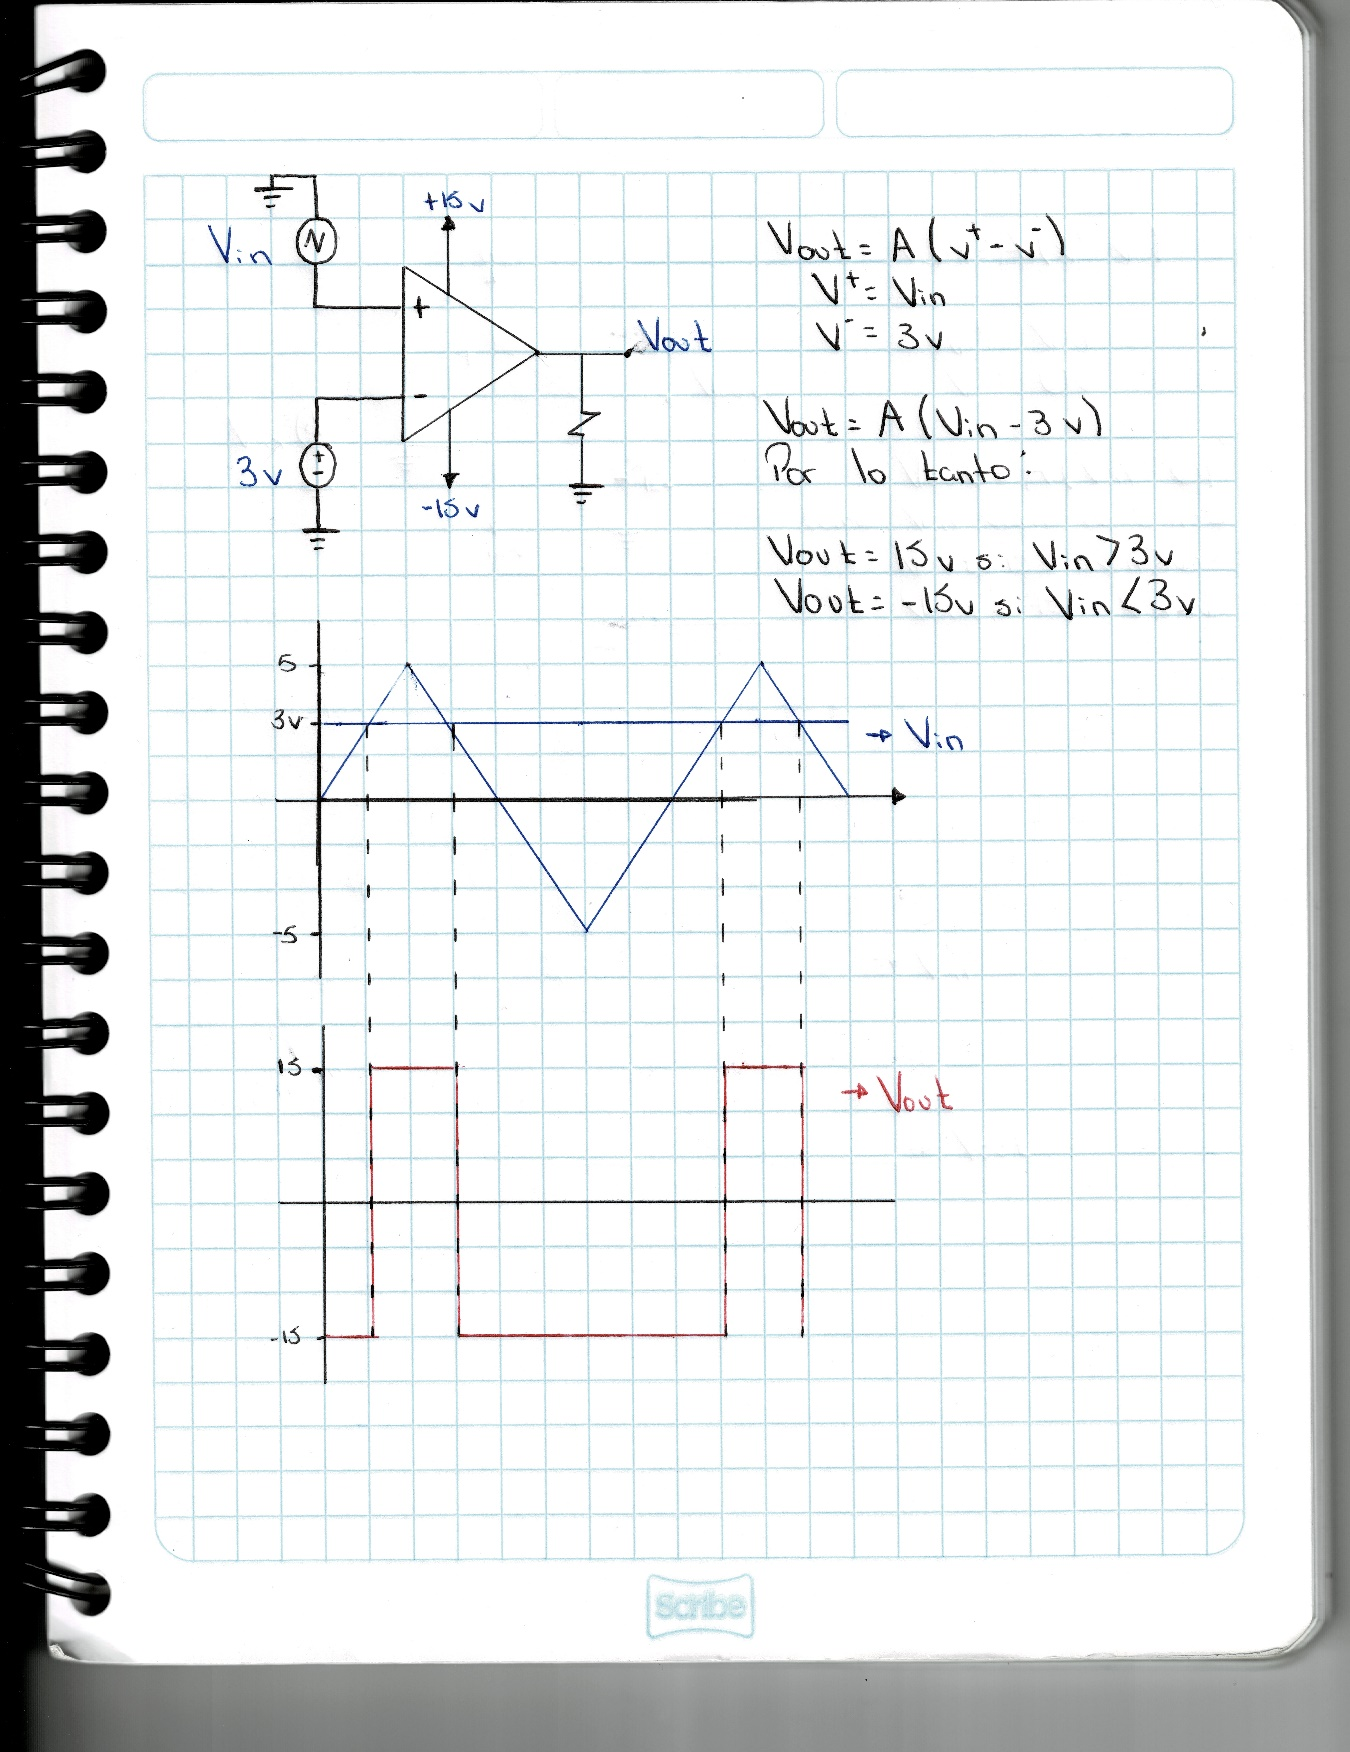 +15v
Vin
+
-
Vout
3v
+
-
-15v
Vout = A (v⁺ - v⁻)
V⁺ = Vin
V⁻ = 3v
Vout = A (Vin - 3v)
Por lo tanto:
Vout = 15v si Vin > 3v
Vout = -15v si Vin < 3v
5
3v
→ Vin
-5
15
→ Vout
-15
Scribe